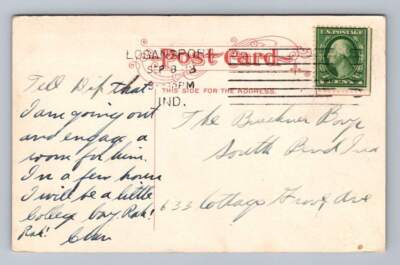 Post Card
LOGANSPORT
SEP 8
PM
IND.
U.S. POSTAGE
CENTS
THIS SIDE FOR THE ADDRESS.
Tell Dip that
I am going out
and engage a
room for him.
In a few hours
I will be a little
College boy. Rah!
Rah!
The Bruckner Boys
South Bend Ind
633 Cottage Grove Ave